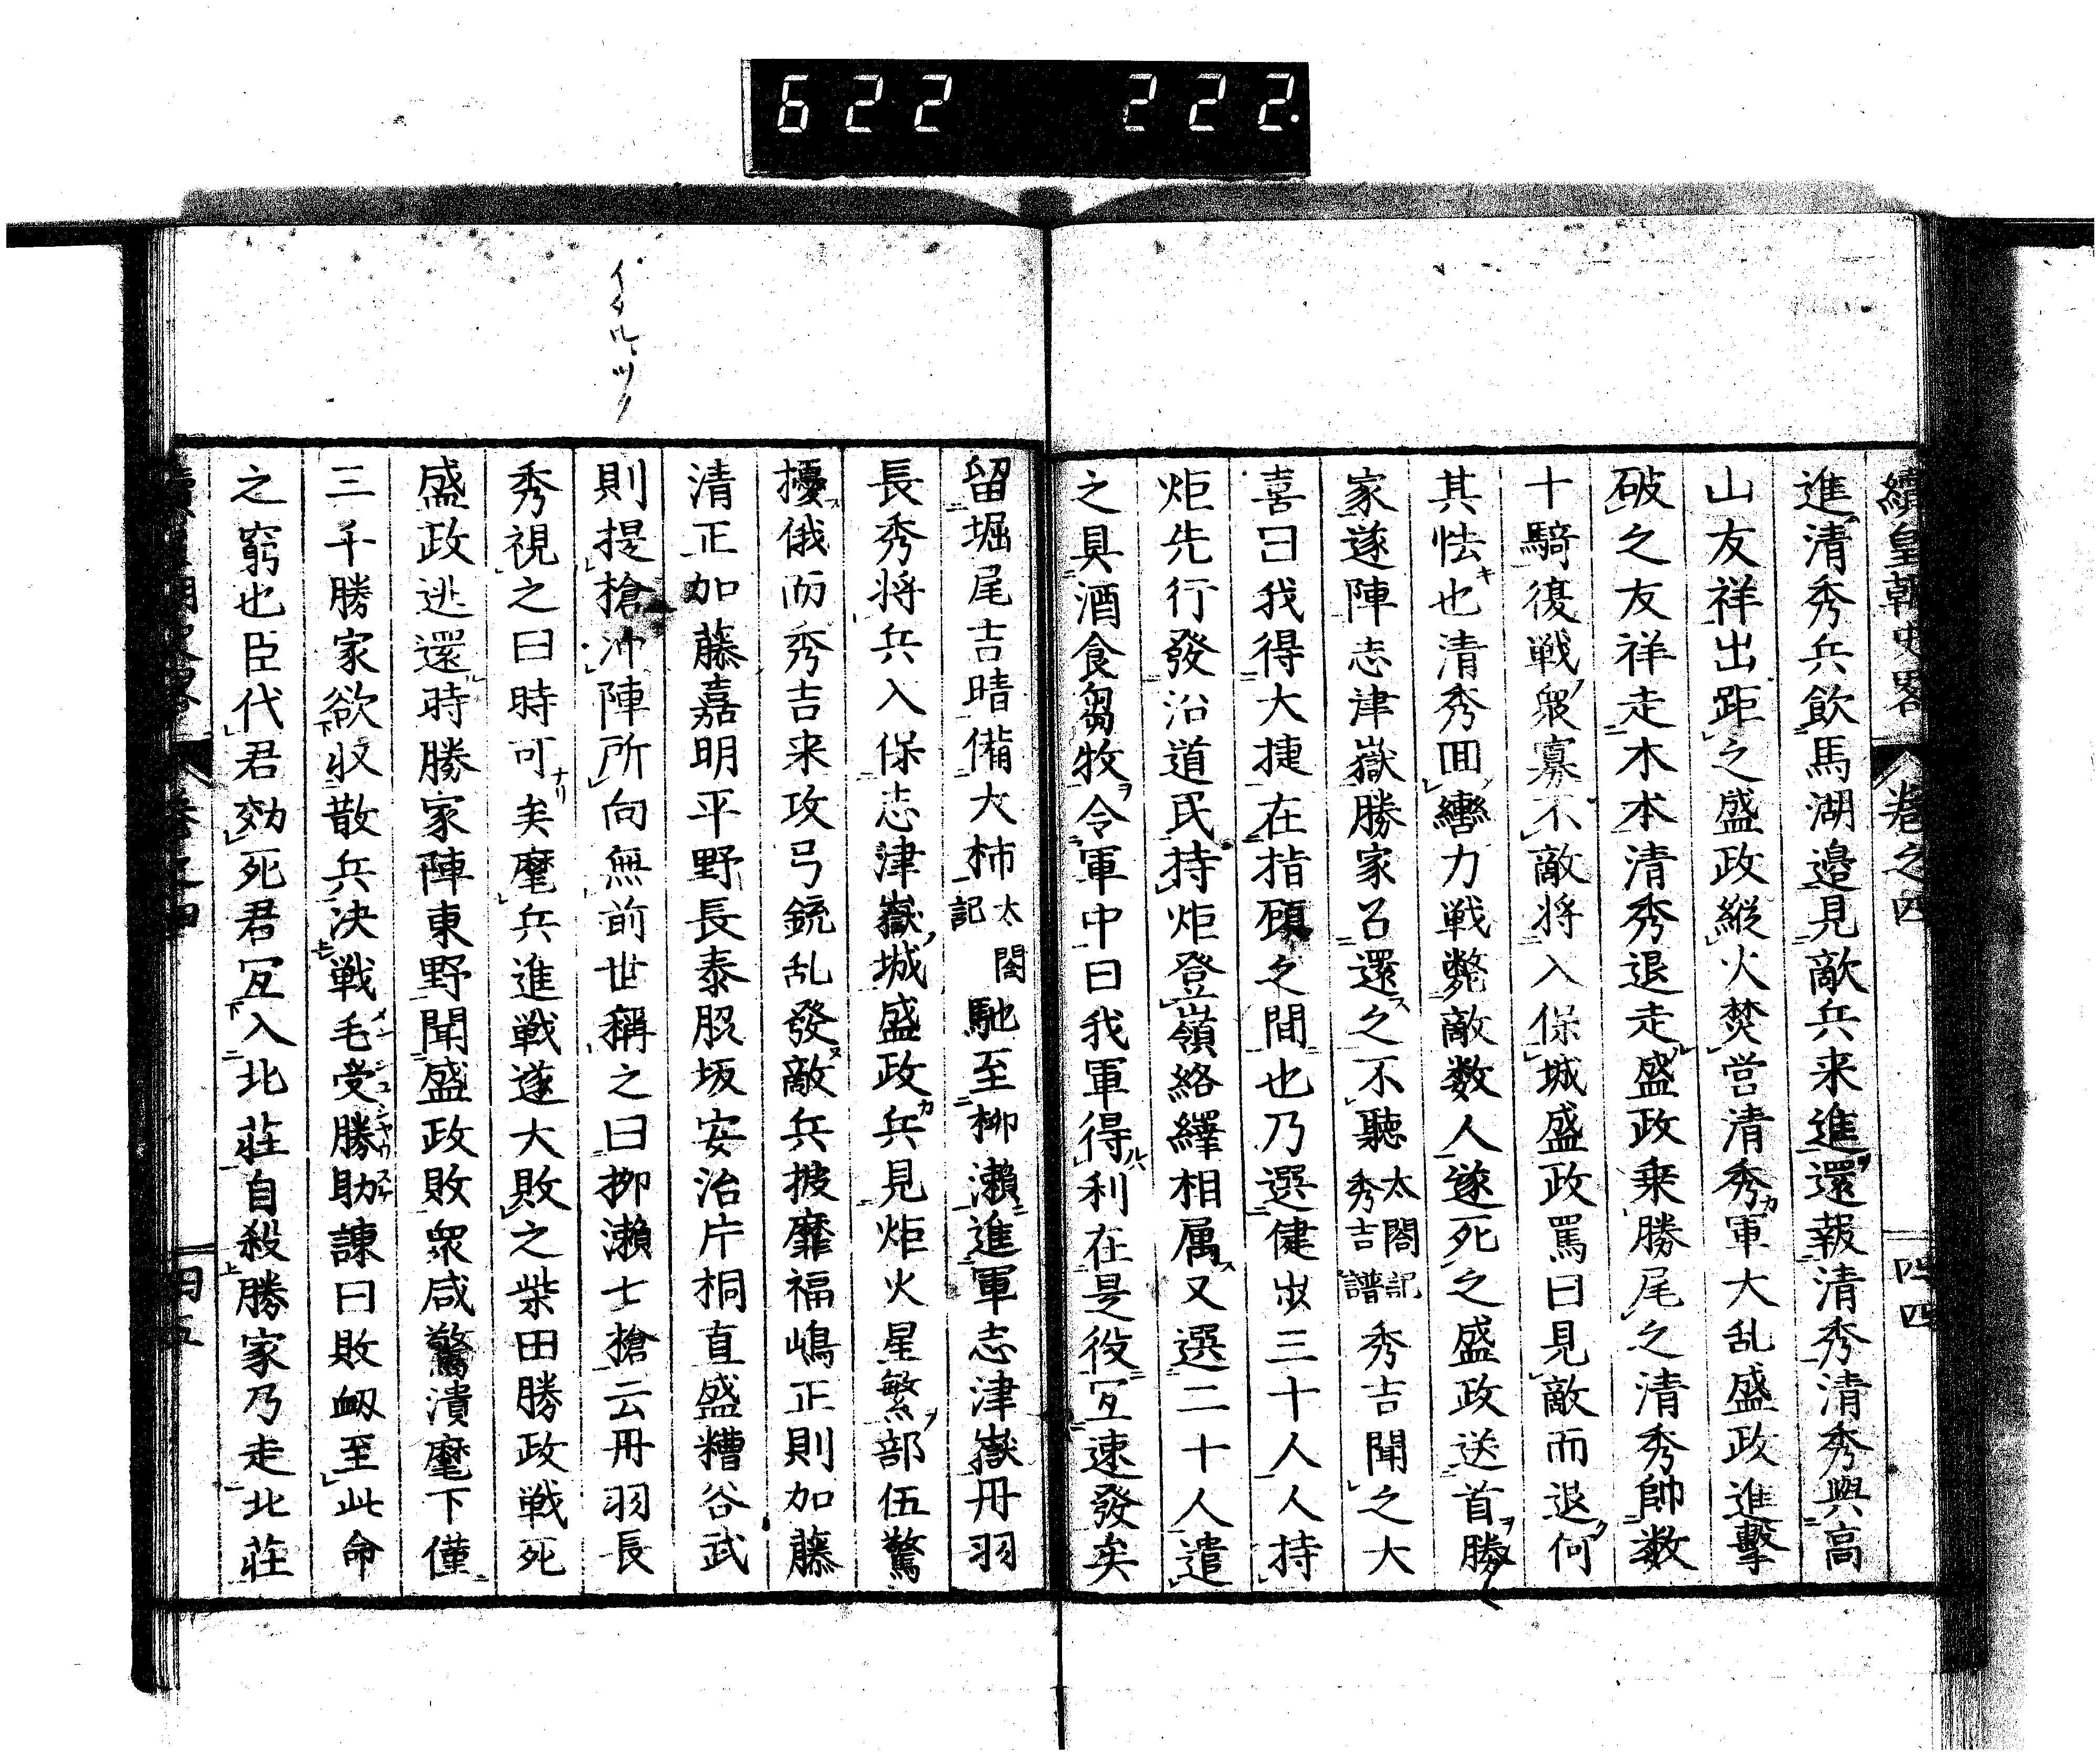 622 222.
續皇朝史畧 卷之四 四四
進清秀兵飲馬湖邉見敵兵来進還報清秀清秀與高
山友祥出距之盛政縦火焚営清秀軍大乱盛政進擊
破之友祥走木本清秀退走盛政乗勝尾之清秀帥数
十騎復戦衆寡不敵将入保城盛政罵曰見敵而退何
其怯也清秀囬轡力戦斃敵数人遂死之盛政送首勝
家遂陣志津嶽勝家召還之不聽太閤記秀吉譜秀吉聞之大
喜曰我得大捷在指顧之間也乃選健歩三十人人持
炬先行發沿道民持炬登嶺絡繹相属又選二十人遣
之具酒食芻牧令軍中曰我軍得利在是役冝速發矣
留堀尾吉晴備大柿太閤記馳至柳瀬進軍志津嶽丹羽
長秀将兵入保志津嶽城盛政兵見炬火星繁部伍驚
擾俄而秀吉来攻弓銃乱發敵兵披靡福嶋正則加藤
清正加藤嘉明平野長泰脇坂安治片桐直盛糟谷武
則提槍冲陣所向無前世稱之曰柳瀬七槍云丹羽長
秀視之曰時可矣麾兵進戦遂大敗之柴田勝政戦死
盛政逃還時勝家陣東野聞盛政敗衆咸驚潰麾下僅
三千勝家欲収散兵决戦毛受勝助諫曰敗衂至此命
之窮也臣代君効死君冝入北莊自殺勝家乃走北莊